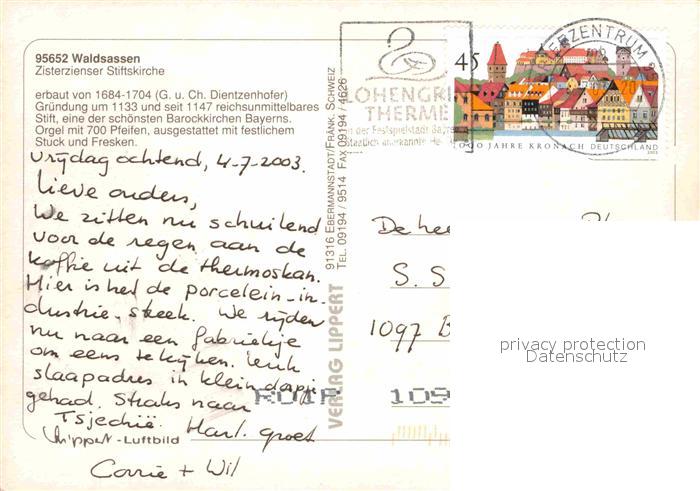 95652 Waldsassen
Zisterzienser Stiftskirche
erbaut von 1684-1704 (G. u. Ch. Dientzenhofer)
Gründung um 1133 und seit 1147 reichsunmittelbares
Stift, eine der schönsten Barockkirchen Bayerns.
Orgel mit 700 Pfeifen, ausgestattet mit festlichem
Stuck und Fresken.
vrijdag ochtend, 4-7-2003.
Lieve ouders,
We zitten nu schuilend
voor de regen aan de
koffie uit de thermoskan.
Hier is het de porcelein-in-
dustrie-streek. We rijden
nu naar een fabriekje
om eens te kijken. Leuk
slaapadres in klein dorpje
gehad. Straks naar
Tsjechië. Hart. groet
Corrie + Wil
Lippert-Luftbild
VERLAG LIPPERT
91316 EBERMANNSTADT/FRÄNK. SCHWEIZ
TEL. 09194 / 9514 FAX 09194 / 4626
LOHENGRIN
THERME
in der Festspielstadt Bayreuth
Staatlich anerkannte
45
1000 JAHRE KRONACH DEUTSCHLAND
2003
ERZENTRUM
De hee
S. S
1097 B
109
privacy protection
Datenschutz